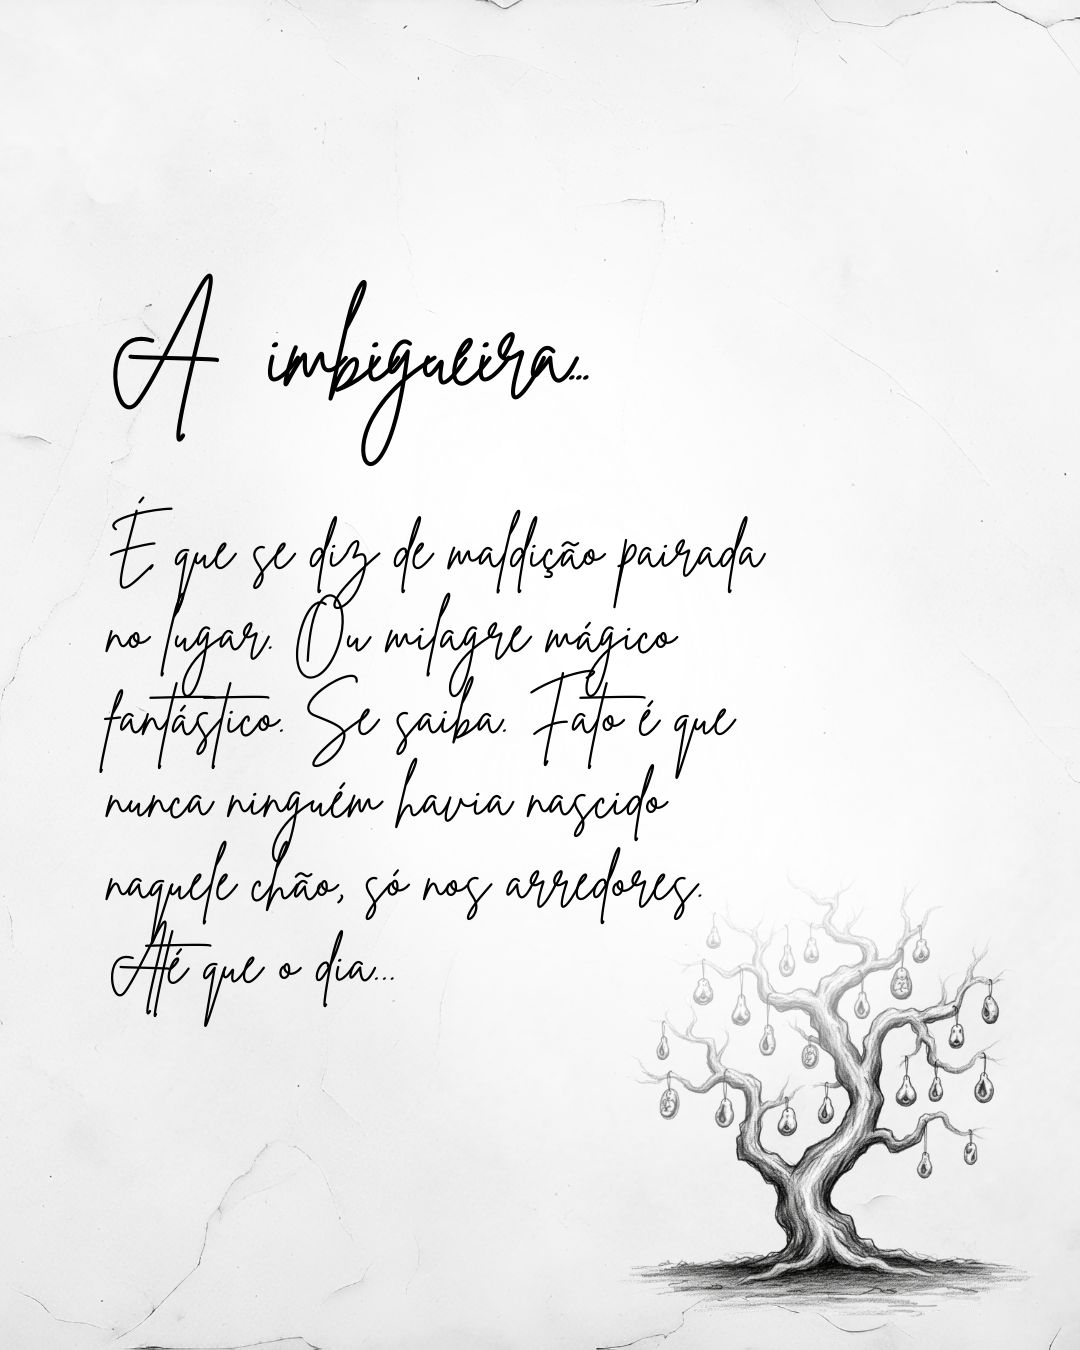 A imbigueira...
É que se diz de maldição pairada
no lugar. Ou milagre mágico
fantástico. Se saiba. Fato é que
nunca ninguém havia nascido
naquele chão, só nos arredores.
Até que o dia...